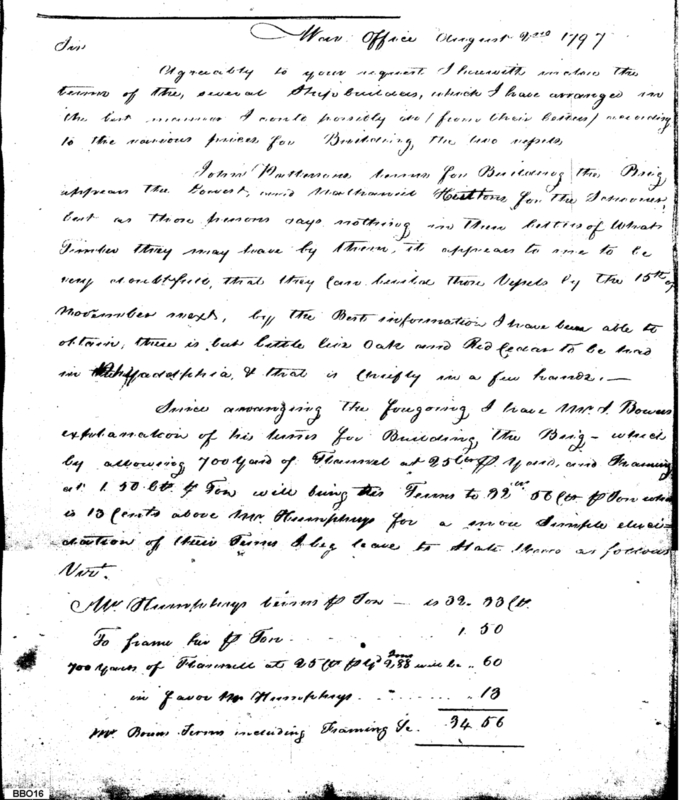 War Office August 2nd 1797
Sir
Agreeably to your request I herewith inclose the
terms of the, several Shipbuilders, which I have arranged in
the best manner I could possibly do (from their letters) according
to the various prices for Building, the two vessels
John Pattersons terms for Building the Brig
appears the Lowest, and Nathaniel Huttons for the Schooner,
but as those persons says nothing in their letters of What
Timber they may have by them, it appears to me to be
very doubtfull, that they can build those Vessels by the 15th of
November next, by the Best information I have been able to
obtain, there is but little live Oak and Red Cedar to be had
in Philadelphia, & that is chiefly in a few hands.—
Since arranging the foregoing I have Mr. Bowers
explanation of his terms for Building, the Brig – which
by allowing 700 Yard of Flannel at 25 Cts p Yard, and Framing
at 1.50 Cts p Ton will bring his Terms to 56 Cts p Ton which
is 13 Cents above Mr Humphrys for a more Simple eluci-
dation of their Terms I beg leave to State them as follows
Vizt.
Mr Humphrys terms p Ton — is 32. 33 Cts.
To frame her p Ton . . . 1. 50
700 Yards of Flannell at 25 Cts p Yd Tons 288 will be .. 60
in favor Mr Humphrys . . . .. 13
Mr. Bowers Terms including Framing &c. 34 56
BBO16